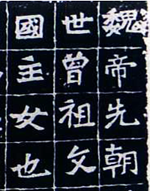 魏帝先朝
世曾祖父
國主女也